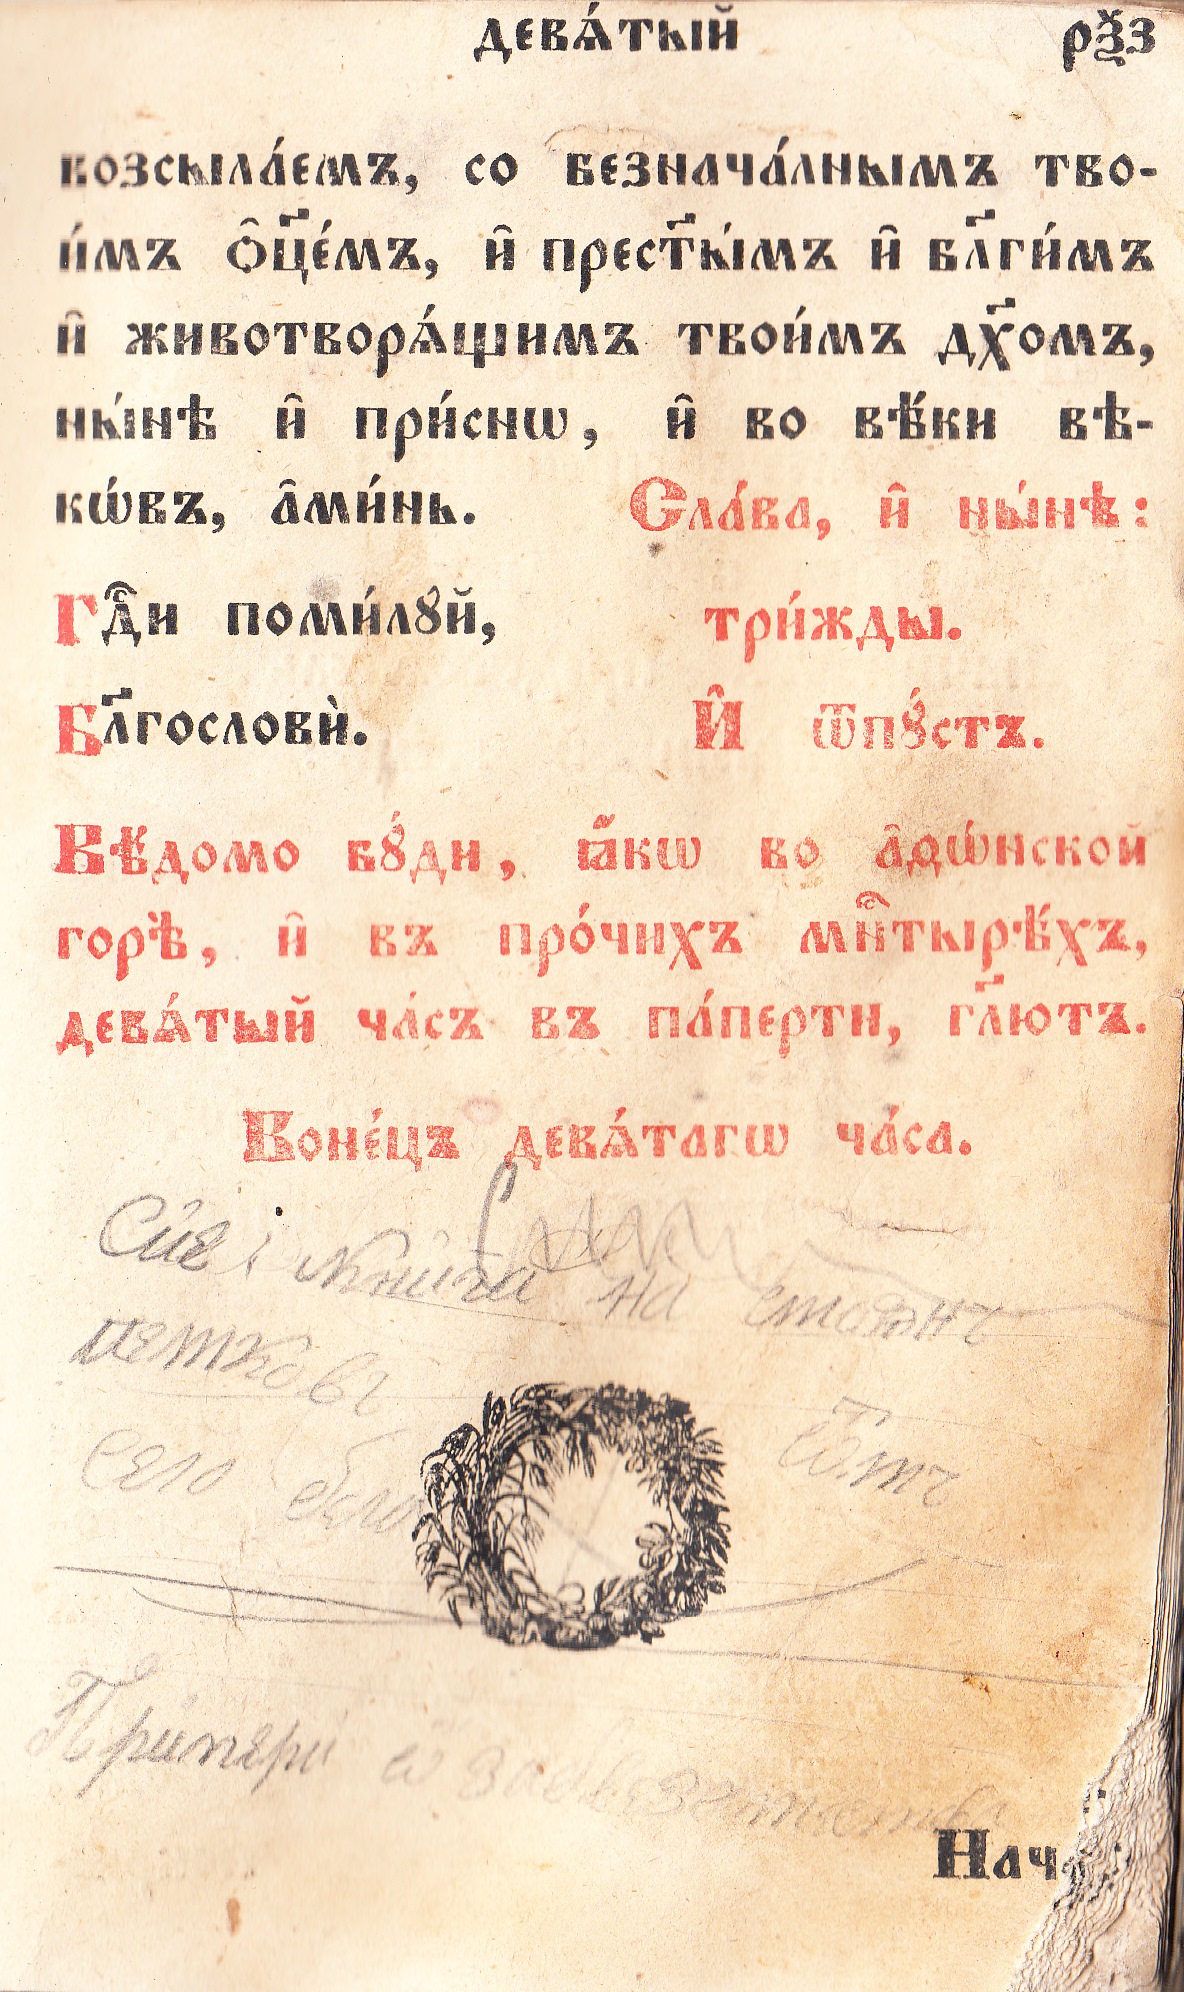 девѧ́тый рѯ҃з
возсыла́емъ, со безнача́лнымъ тво-
и́мъ ѻ҆ц҃е́мъ, и҆ прест҃ы́мъ и҆ бл҃ги́мъ
и҆ животворѧ́щимъ твои́мъ дх҃омъ,
ны́нѣ и҆ при́снѡ, и҆ во вѣ́ки вѣ-
кѡ́въ, а҆ми́нь. Сла́ва, и҆ ны́нѣ:
Гдⷭ҇и поми́лꙋй, три́жды.
Бл҃гословѝ. И҆ ѿпꙋ́стъ.
Вѣ́домо бꙋ́ди, ꙗ҆́кѡ во а҆ѳѡ́нской
горѣ̀, и҆ въ про́чихъ мн҇ⷭтырѣ́хъ,
девѧ́тый ча́съ въ па́перти, гл҃ютъ.
Коне́цъ девѧ́тагѡ ча́са.
Сие Книга на стоянъ
петковъ
село бело
Нач